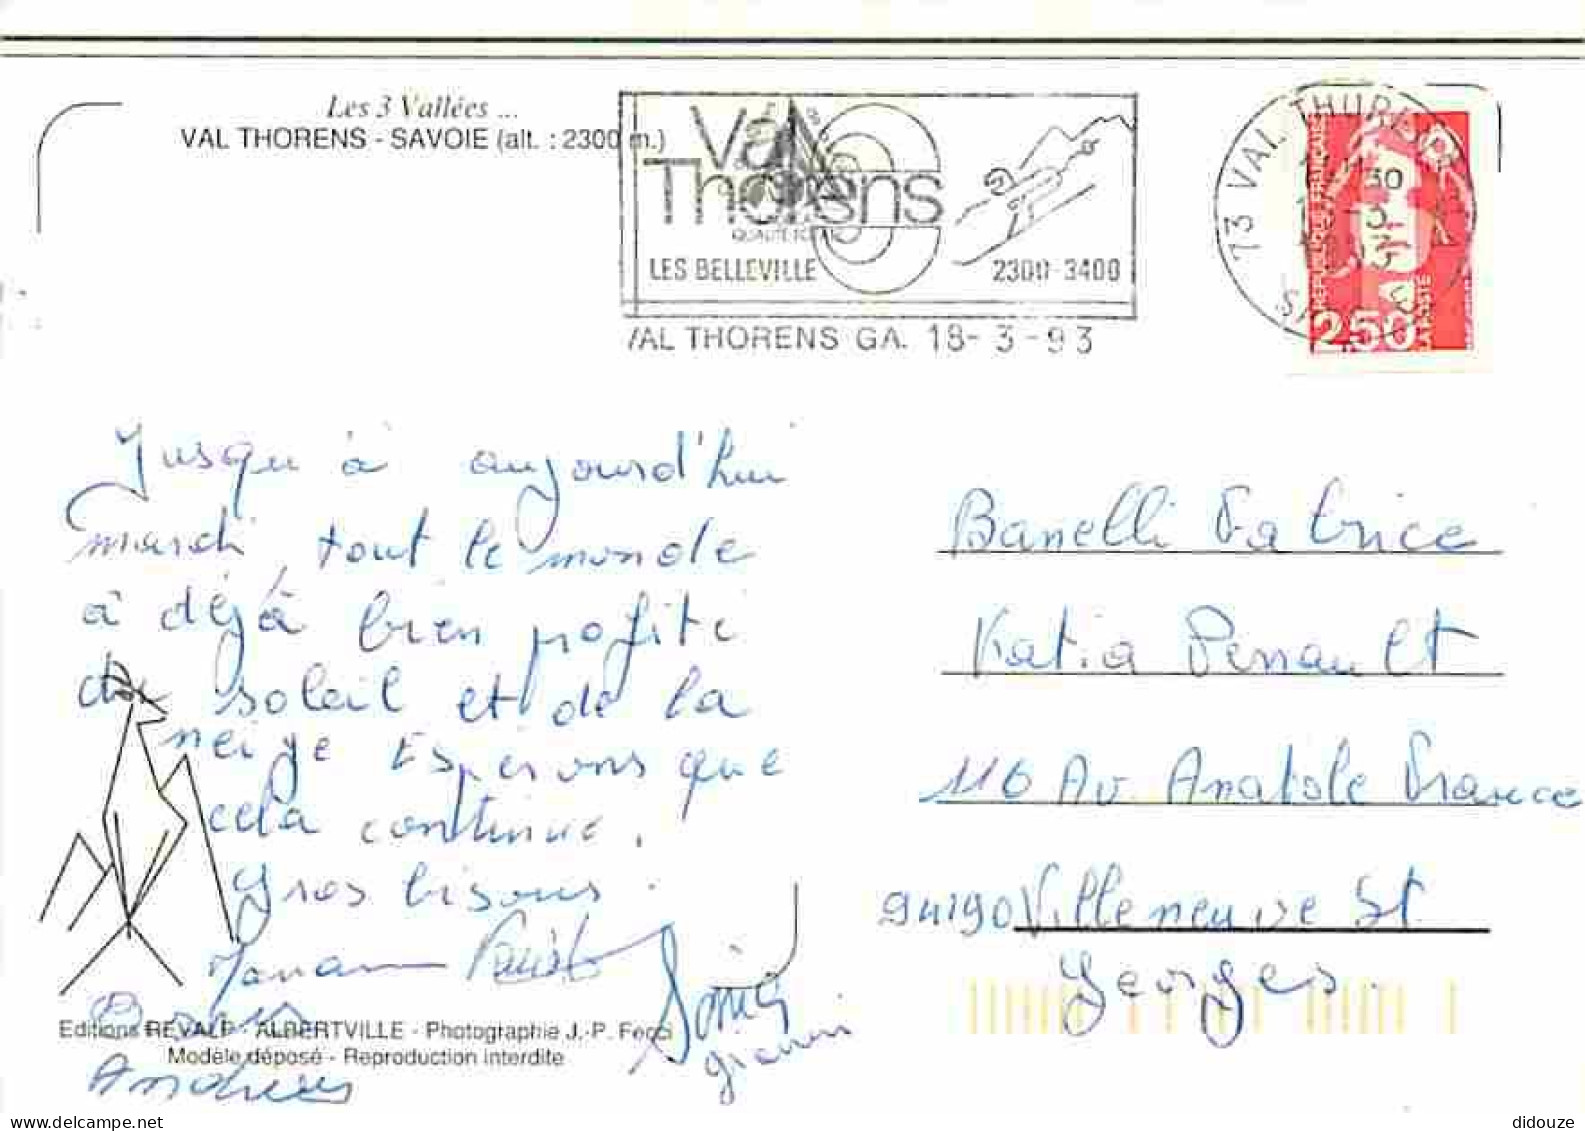 Les 3 Vallées ...
VAL THORENS - SAVOIE (alt. : 2300 m.)
Val
Thorens
LES BELLEVILLE 2300-3400
VAL THORENS GA. 18-3-93
73 VAL THORENS
REPUBLIQUE FRANÇAISE
2,50
LA POSTE
Jusqu'à aujourd'hui
mardi, tout le monde
à déjà bien profité
du soleil et de la
neige Espérons que
cela continue.
Gros bisous.
Sonia
Andrews
Banelli Patrice
Katia Perrault
116 Av. Anatole France
94190 Villeneuve St
Georges.
Editions REVALP - ALBERTVILLE - Photographie J.-P. Fecci
Modèle déposé - Reproduction interdite
didouze